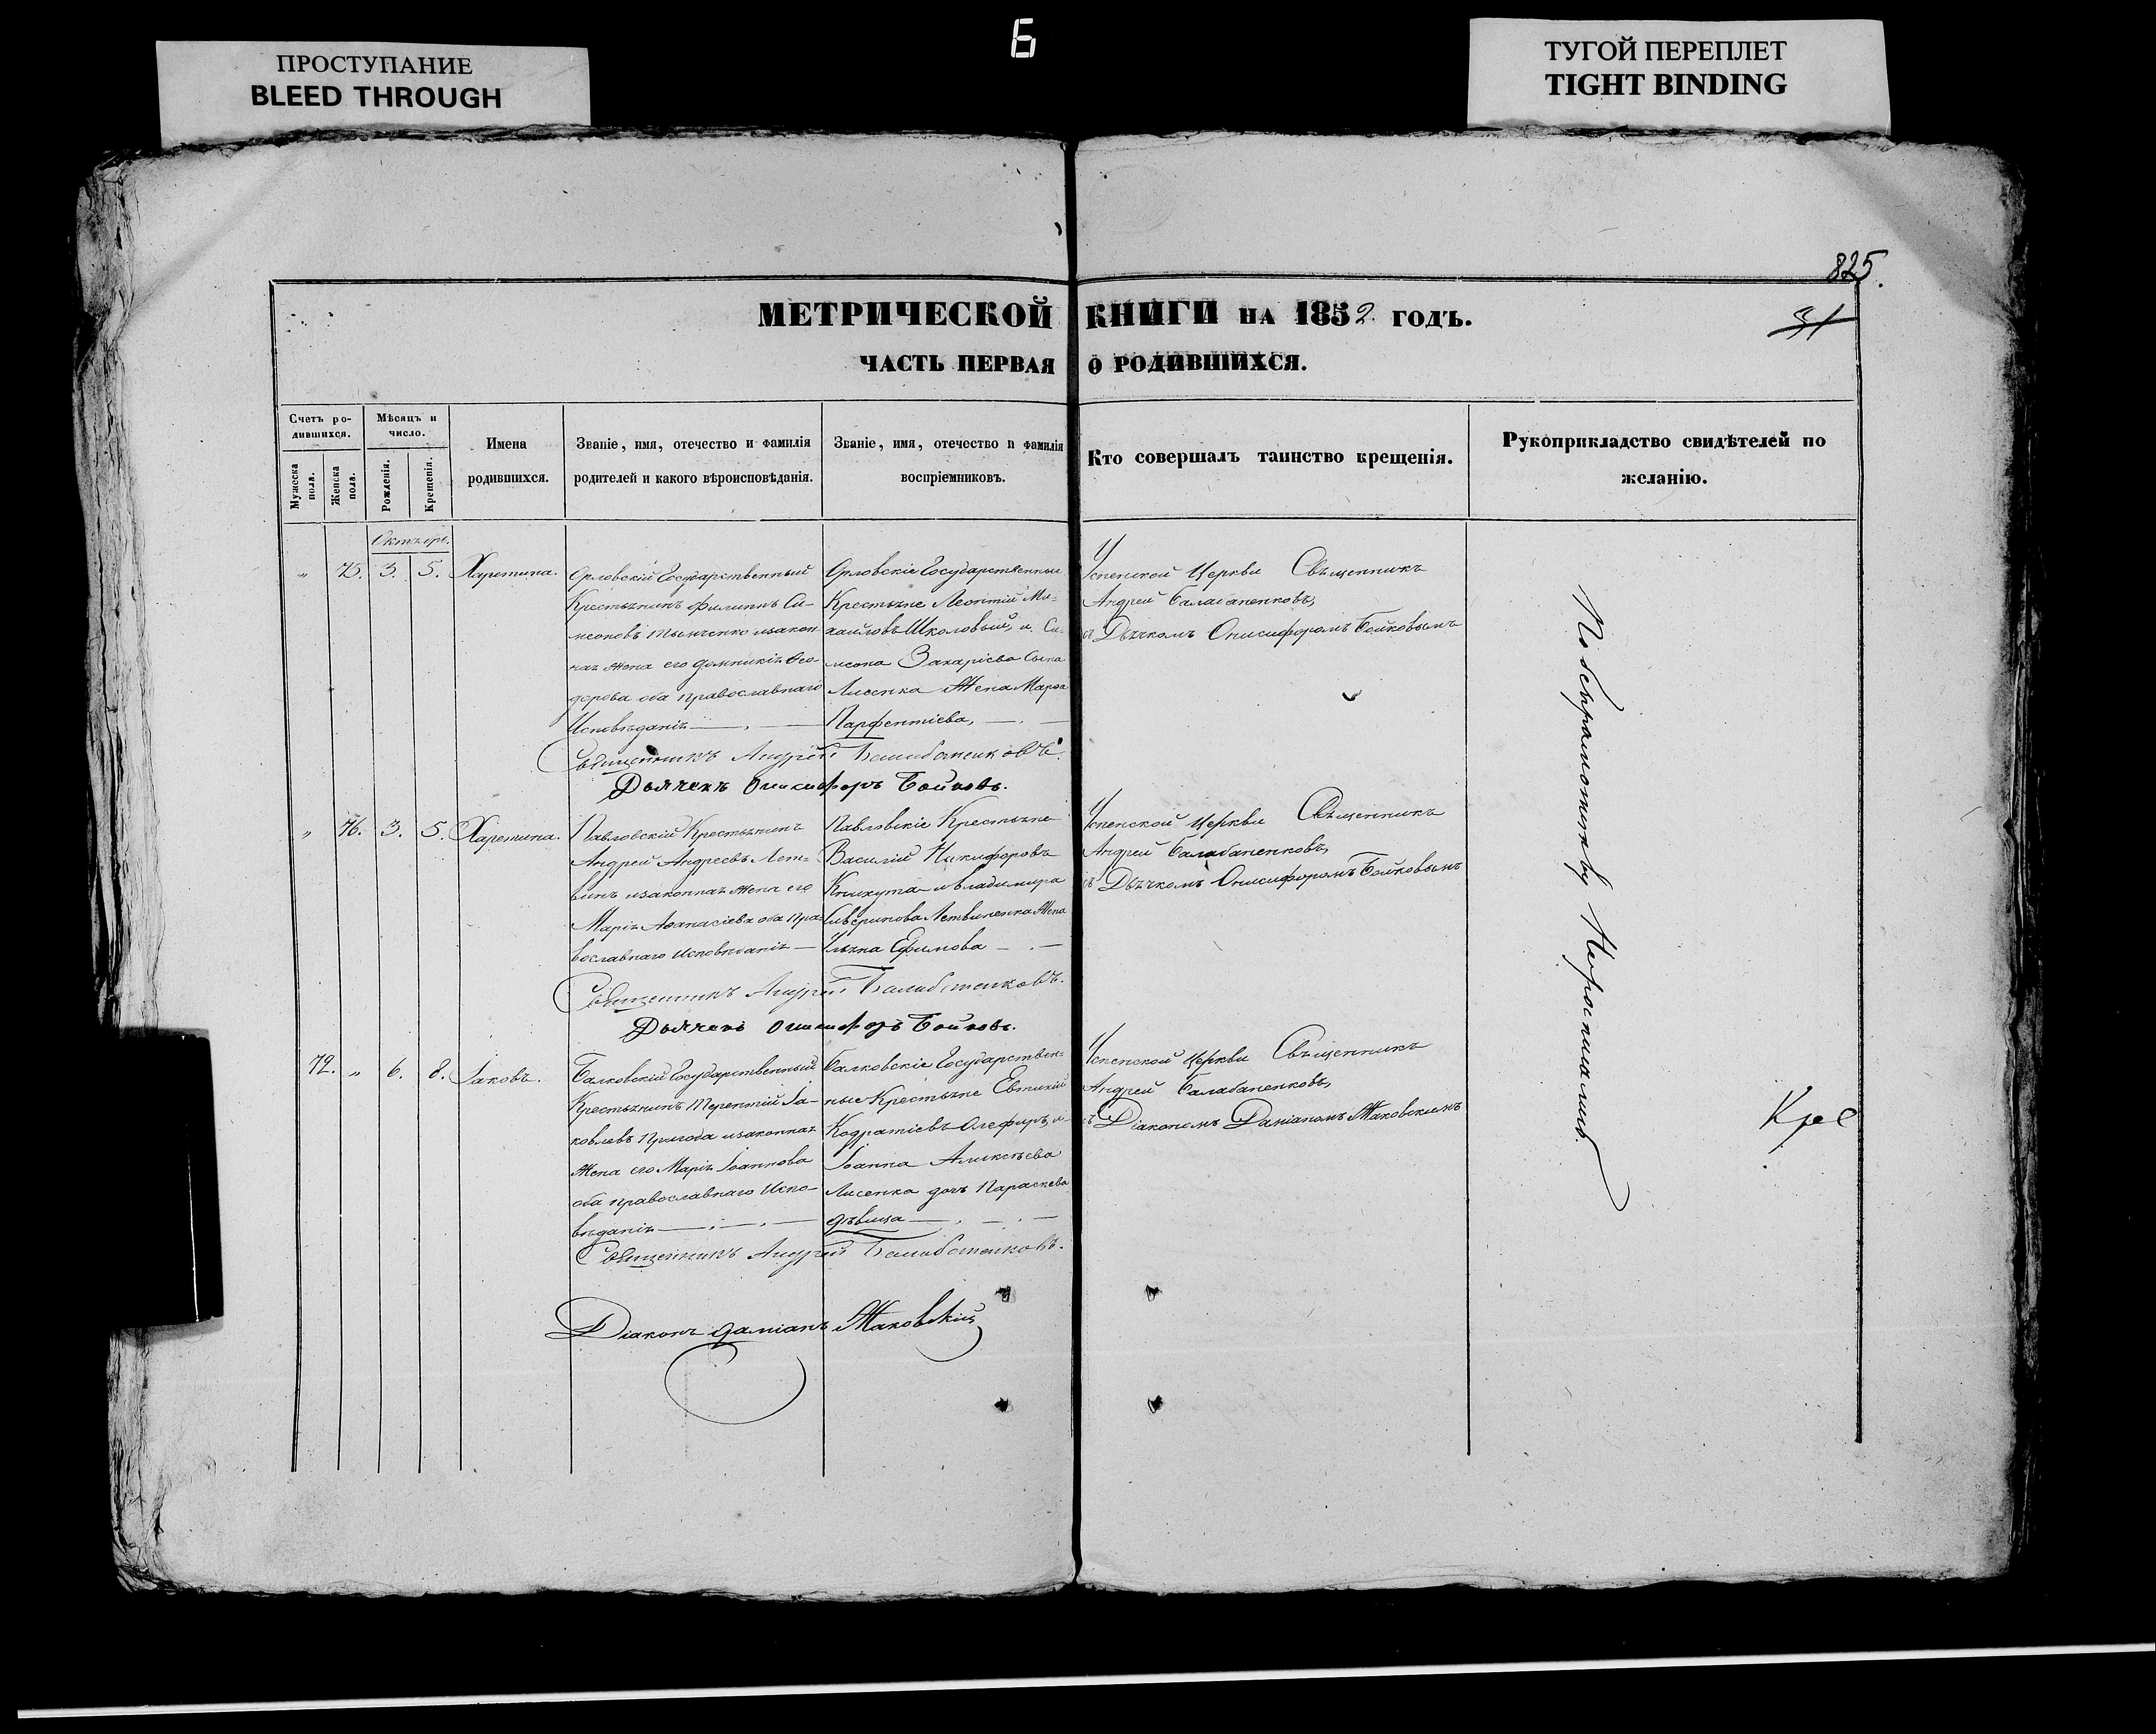 Б
ПРОСТУПАНИЕ
BLEED THROUGH
ТУГОЙ ПЕРЕПЛЕТ
TIGHT BINDING
825.
31
МЕТРИЧЕСКОЙ КНИГИ НА 1852 ГОДЪ.
ЧАСТЬ ПЕРВАЯ О РОДИВШИХСЯ.
Счетъ ро-
дившихся.
Мужеска пола.
Женска пола.
Мѣсяцъ и
число.
Рожденія.
Крещенія.
Имена
родившихся.
Званіе, имя, отечество и фамилія
родителей и какого вѣроисповѣданія.
Званіе, имя, отечество и фамилія
воспріемниковъ.
Кто совершалъ таинство крещенія.
Рукоприкладство свидѣтелей по
желанію.
Октября.
" 75. 3. 5. Харетина.
Орловскій Государственный
Крестьянинъ Филиппъ Си-
меоновъ законн
ная жена его Домникія Ѳео-
дорова оба православнаго
Исповѣданія
Орловскіе Государственные
Крестьяне Леонтій Ми-
хайловъ Школовый, и Си-
меона Захаріева сына
Лисенка жена Марѳа
Парфентіева,
Успенской Церкви Священникъ
Андрей Балабаненковъ,
съ Дьячкомъ Онисифоромъ Бойковымъ
Священникъ Андрей Балабаненковъ.
Дьячекъ Онисифоръ Бойковъ.
" 76. 3. 5. Харетина.
Павловскій Крестьянинъ
Андрей Андреевъ Лет-
винъ изаконная жена его
Марія Аѳанасіева оба Пра-
вославнаго исповѣданія
Павловскіе Крестьяне
Василій Никифоровъ
и Владимира
Летвиненка жена
Ульяна Ефимова
Успенской Церкви Священникъ
Андрей Балабаненковъ,
съ Дьячкомъ Онисифоромъ Бойковымъ
Священникъ Андрей Балабаненковъ.
Дьячекъ Онисифоръ Бойковъ.
72. " 6. 8. Іаковъ.
Балковскій Государственный
Крестьянинъ Терентій Іа-
ковлевъ Пригода изаконная
жена его Марія Іоаннова
оба православнаго Испо-
вѣданія
Балковскіе Государствен-
ные Крестьяне Евтихій
Кодратіевъ Олефиръ, и
Іоанна Алексѣева
Лисенка дочь Параскева
дѣвица
Успенской Церкви Священникъ
Андрей Балабаненковъ,
съ Діакономъ Даміаномъ Маковскимъ
Священникъ Андрей Балабаненковъ.
Діаконъ Даміанъ Маковскій
По безграмотству Неросписались.
Крес